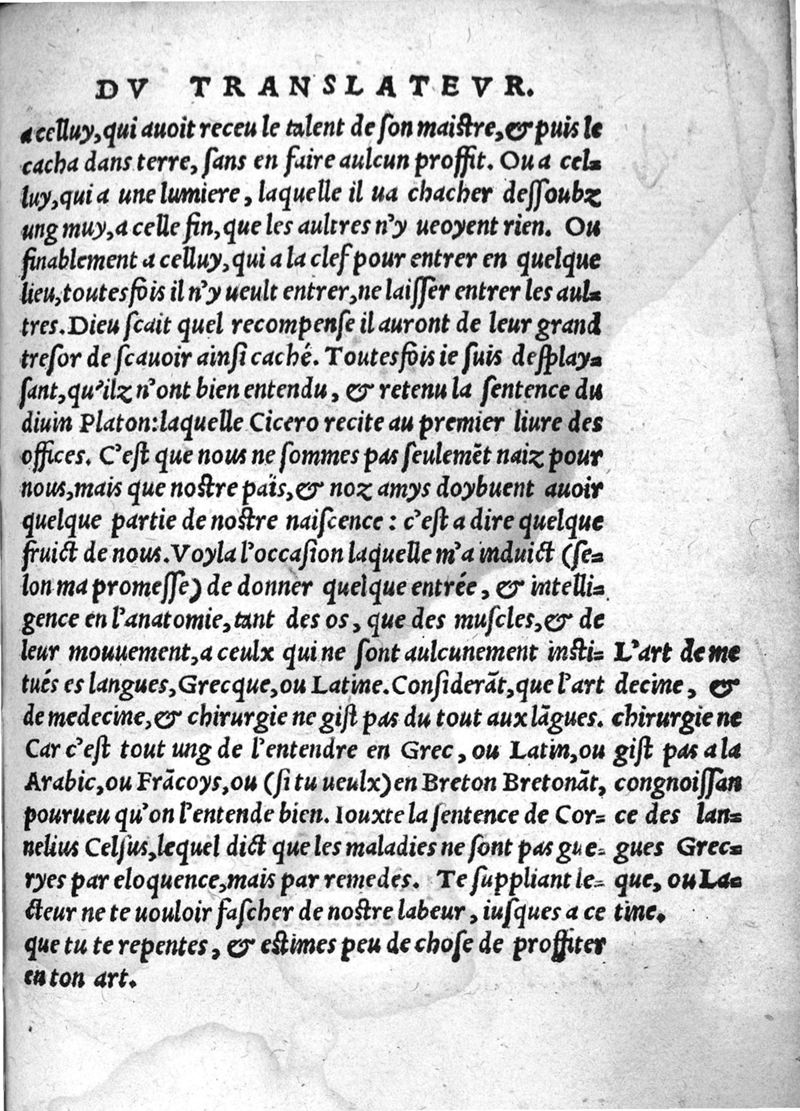 DV TRANSLATEVR.
a celluy, qui auoit receu le talent de ſon maiſtre, & puis le
cacha dans terre, ſans en faire aulcun proffit. Ou a cel-
luy, qui a une lumiere, laquelle il ua chacher deſſoubz
ung muy, a celle fin, que les aultres n'y ueoyent rien. Ou
finablement a celluy, qui a la clef pour entrer en quelque
lieu, toutesfois il n'y ueult entrer, ne laiſſer entrer les aul-
tres. Dieu ſcait quel recompenſe il auront de leur grand
treſor de ſcauoir ainſi caché. Toutesfois ie ſuis deſplay-
ſant, qu'ilz n'ont bien entendu, & retenu la ſentence du
diuin Platon: laquelle Cicero recite au premier liure des
offices. C'eſt que nous ne ſommes pas ſeulemēt naiz pour
nous, mais que noſtre païs, & noz amys doybuent auoir
quelque partie de noſtre naiſcence: c'eſt a dire quelque
fruict de nous. Voyla l'occaſion laquelle m'a induict (ſe-
lon ma promeſſe) de donner quelque entrée, & intelli-
gence en l'anatomie, tant des os, que des muſcles, & de
leur mouuement, a ceulx qui ne ſont aulcunement inſti-
tués es langues, Grecque, ou Latine. Conſiderāt, que l'art
de medecine, & chirurgie ne giſt pas du tout aux lāgues.
Car c'eſt tout ung de l'entendre en Grec, ou Latin, ou
Arabic, ou Frācoys, ou (ſi tu ueulx) en Breton Bretonāt,
pourueu qu'on l'entende bien. Iouxte la ſentence de Cor-
nelius Celſus, lequel dict que les maladies ne ſont pas gue-
ryes par eloquence, mais par remedes. Te ſuppliant le-
cteur ne te uouloir faſcher de noſtre labeur, iuſques a ce
que tu te repentes, & eſtimes peu de choſe de proffiter
en ton art.
L'art de me
decine, &
chirurgie ne
giſt pas a la
congnoiſſan
ce des lan-
gues Grec-
que, ou La-
tine.